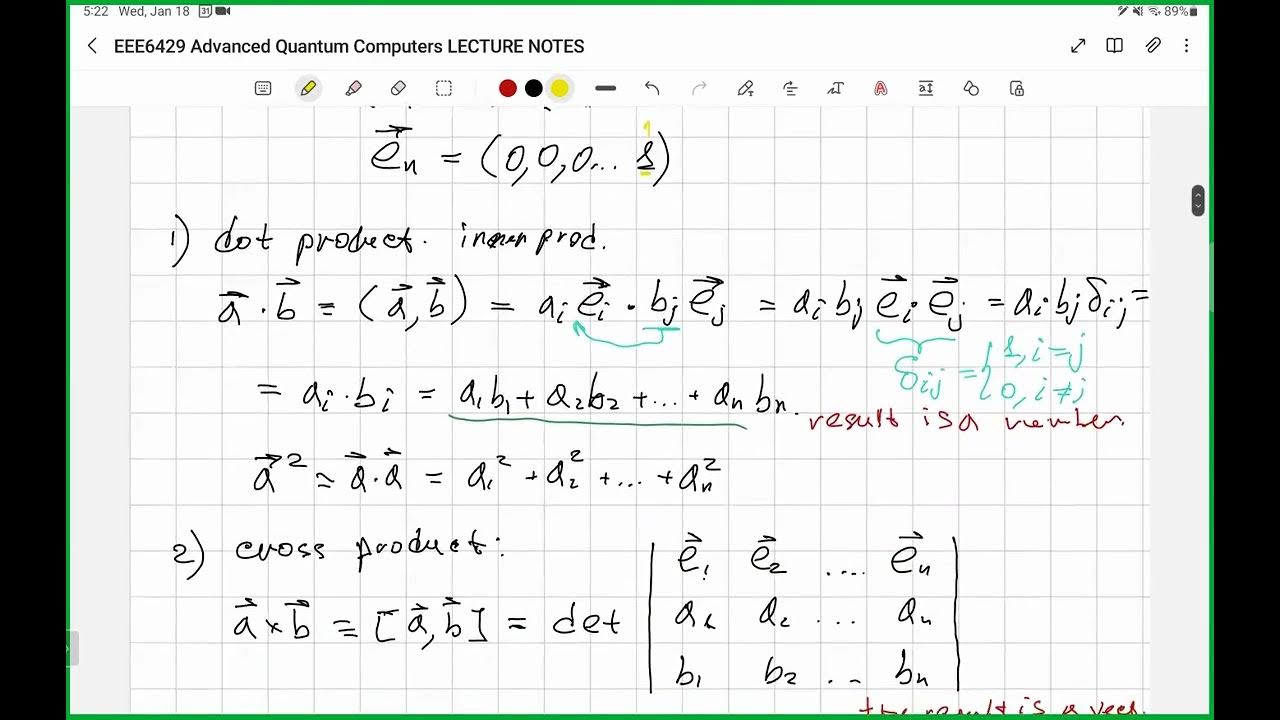 5:22 Wed, Jan 18 31 89%
EEE6429 Advanced Quantum Computers LECTURE NOTES
1
e⃗n = (0,0,0... 1)
1) dot product. inner prod.
a⃗ · b⃗ ≡ (a⃗, b⃗) = ai e⃗i · bj e⃗j = ai bj e⃗i e⃗j = ai bj δij =
δij = { 1, i = j
0, i ≠ j
= ai · bi = a1b1 + a2b2 + ... + an bn.
result is a number.
a⃗² ≃ a⃗·a⃗ = a1² + a2² + ... + an²
2) cross product:
a⃗ × b⃗ ≡ [a⃗, b⃗] = det | e⃗1 e⃗2 .... e⃗n |
a1 a2 ... an
b1 b2 .. bn
the result is a vec.